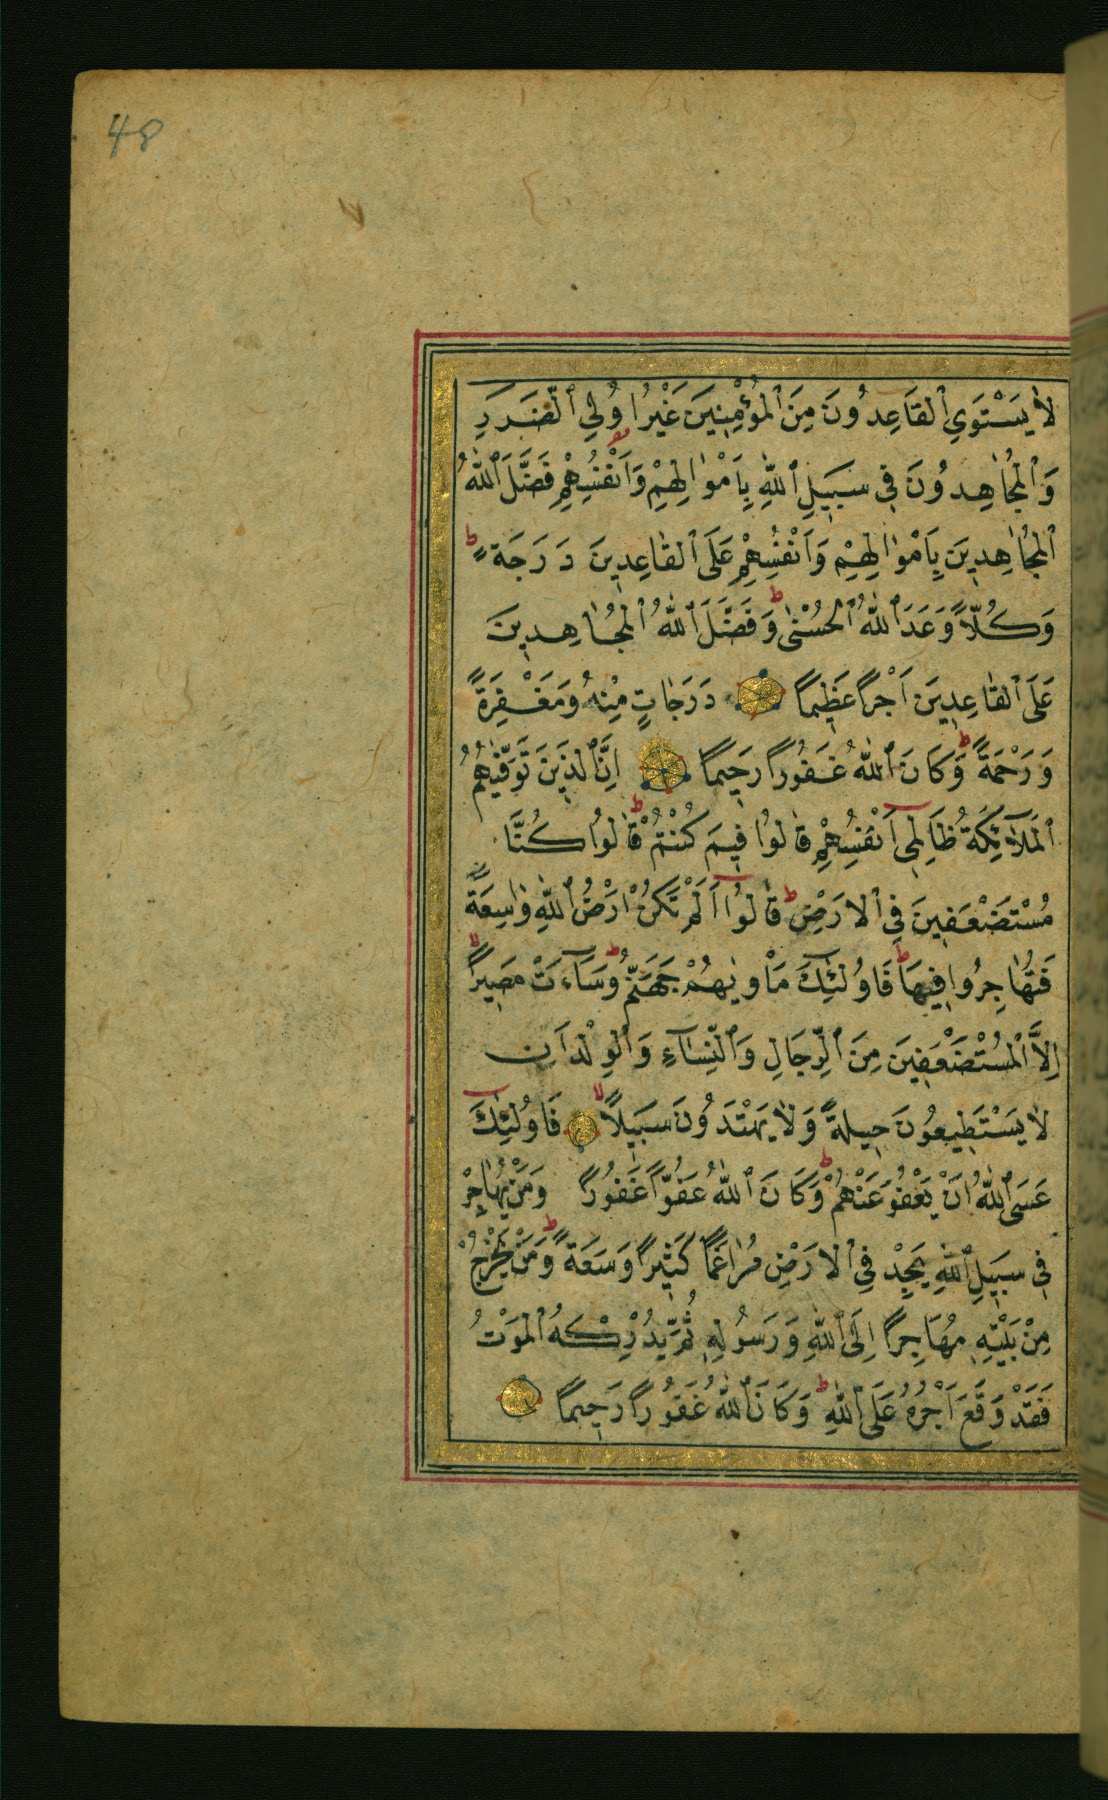 48
لاٰ يَسْتَوِي ٱلقَاعِدُونَ مِنَ ٱلمُؤْمِنِينَ غَيْرُ اُولِي ٱلضَّرَرِ
وَٱلْمُجٰاهِدُونَ فِي سَبِيلِ ٱللّٰهِ بِاَمْوٰالِهِمْ وَاَنْفُسِهِمْ فَضَّلَ ٱللّٰهُ
ٱلْمُجٰاهِدِينَ بِاَمْوٰالِهِمْ وَاَنْفُسِهِمْ عَلَى ٱلقٰاعِدِينَ دَرَجَةً ط
وَكُلّاً وَعَدَ ٱللّٰهُ ٱلْحُسْنٰى ط وَفَضَّلَ ٱللّٰهُ ٱلْمُجٰاهِدِينَ
عَلَى ٱلقٰاعِدِينَ اَجْراً عَظِيماً دَرَجٰاتٍ مِنْهُ وَمَغْفِرَةً
وَرَحْمَةً ط وَكَانَ ٱللّٰهُ غَفُوراً رَحِيماً اِنَّ ٱلَّذِينَ تَوَفّٰيهُمُ
ٱلمَلاٰۤئِكَةُ ظَالِمِي اَنْفُسِهِمْ قٰالُوا فِيمَ كُنْتُمْ ط قٰالُوا كُنَّا
مُسْتَضْعَفِينَ فِي ٱلاَرْضِ ط قٰالُوۤا اَلَمْ تَكُنْ اَرْضُ ٱللّٰهِ وٰاسِعَةً
فَتُهٰاجِرُوا فِيهَا ط فَاُولٰۤئِكَ مَأْوٰيهُمْ جَهَنَّمُ ط وَسَاۤءَتْ مَصِيراً لا
اِلاَّ ٱلْمُسْتَضْعَفِينَ مِنَ ٱلرِّجَالِ وَٱلنِّسَاۤءِ وَٱلْوِلْدَانِ
لاٰ يَسْتَطِيعُونَ حِيلَةً وَلاٰ يَهْتَدُونَ سَبِيلاً لا فَاُولٰۤئِكَ
عَسَى ٱللّٰهُ اَنْ يَعْفُوَ عَنْهُمْ ط وَكَانَ ٱللّٰهُ عَفُوّاً غَفُوراً وَمَنْ يُهٰاجِرْ
فِي سَبِيلِ ٱللّٰهِ يَجِدْ فِي ٱلاَرْضِ مُرٰاغَماً كَثِيراً وَسَعَةً ط وَمَنْ يَخْرُجْ
مِنْ بَيْتِهِ مُهَاجِراً اِلَى ٱللّٰهِ وَرَسُولِهِ ثُمَّ يُدْرِكْهُ ٱلْمَوْتُ
فَقَدْ وَقَعَ اَجْرُهُ عَلَى ٱللّٰهِ ط وَكَانَ ٱللّٰهُ غَفُوراً رَحِيماً